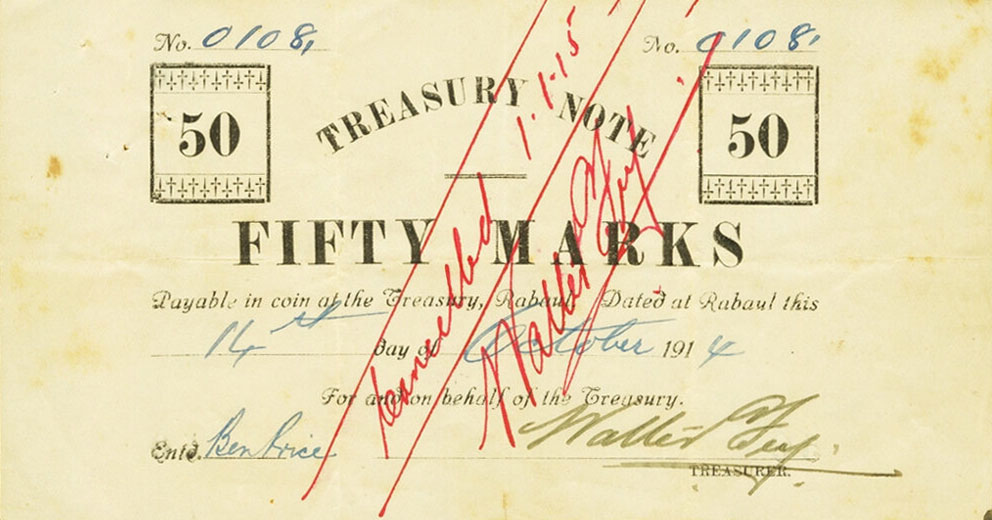 No. 0108, No. 0108,
50 TREASURY NOTE 50
FIFTY MARKS
Payable in coin at the Treasury, Rabaul. Dated at Rabaul this
14th day of October 1914
For and on behalf of the Treasury.
Entd. Ben Price Walter Fry.
TREASURER.
Cancelled
Walter Fry
1.1.15